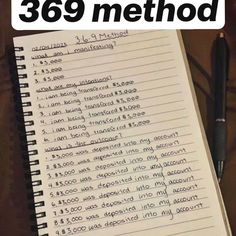 369 method
02/04/2023 3 6 9 Method
what am i manifesting?
1. $3,000
2. $3,000
3. $3,000
what are my intentions?
1. i am being transferred $3,000
2. i am being transferred $3,000
3. i am being transferred $3,000
4. i am being transferred $3,000
5. i am being transferred $3,000
6. i am being transferred $3,000
what is the outcome?
1. $3,000 was deposited into my account
2. $3,000 was deposited into my account
3. $3,000 was deposited into my account
4. $3,000 was deposited into my account
5. $3,000 was deposited into my account
6. $3,000 was deposited into my account
7. $3,000 was deposited into my account
8. $3,000 was deposited into my account
9. $3,000 was deposited into my account